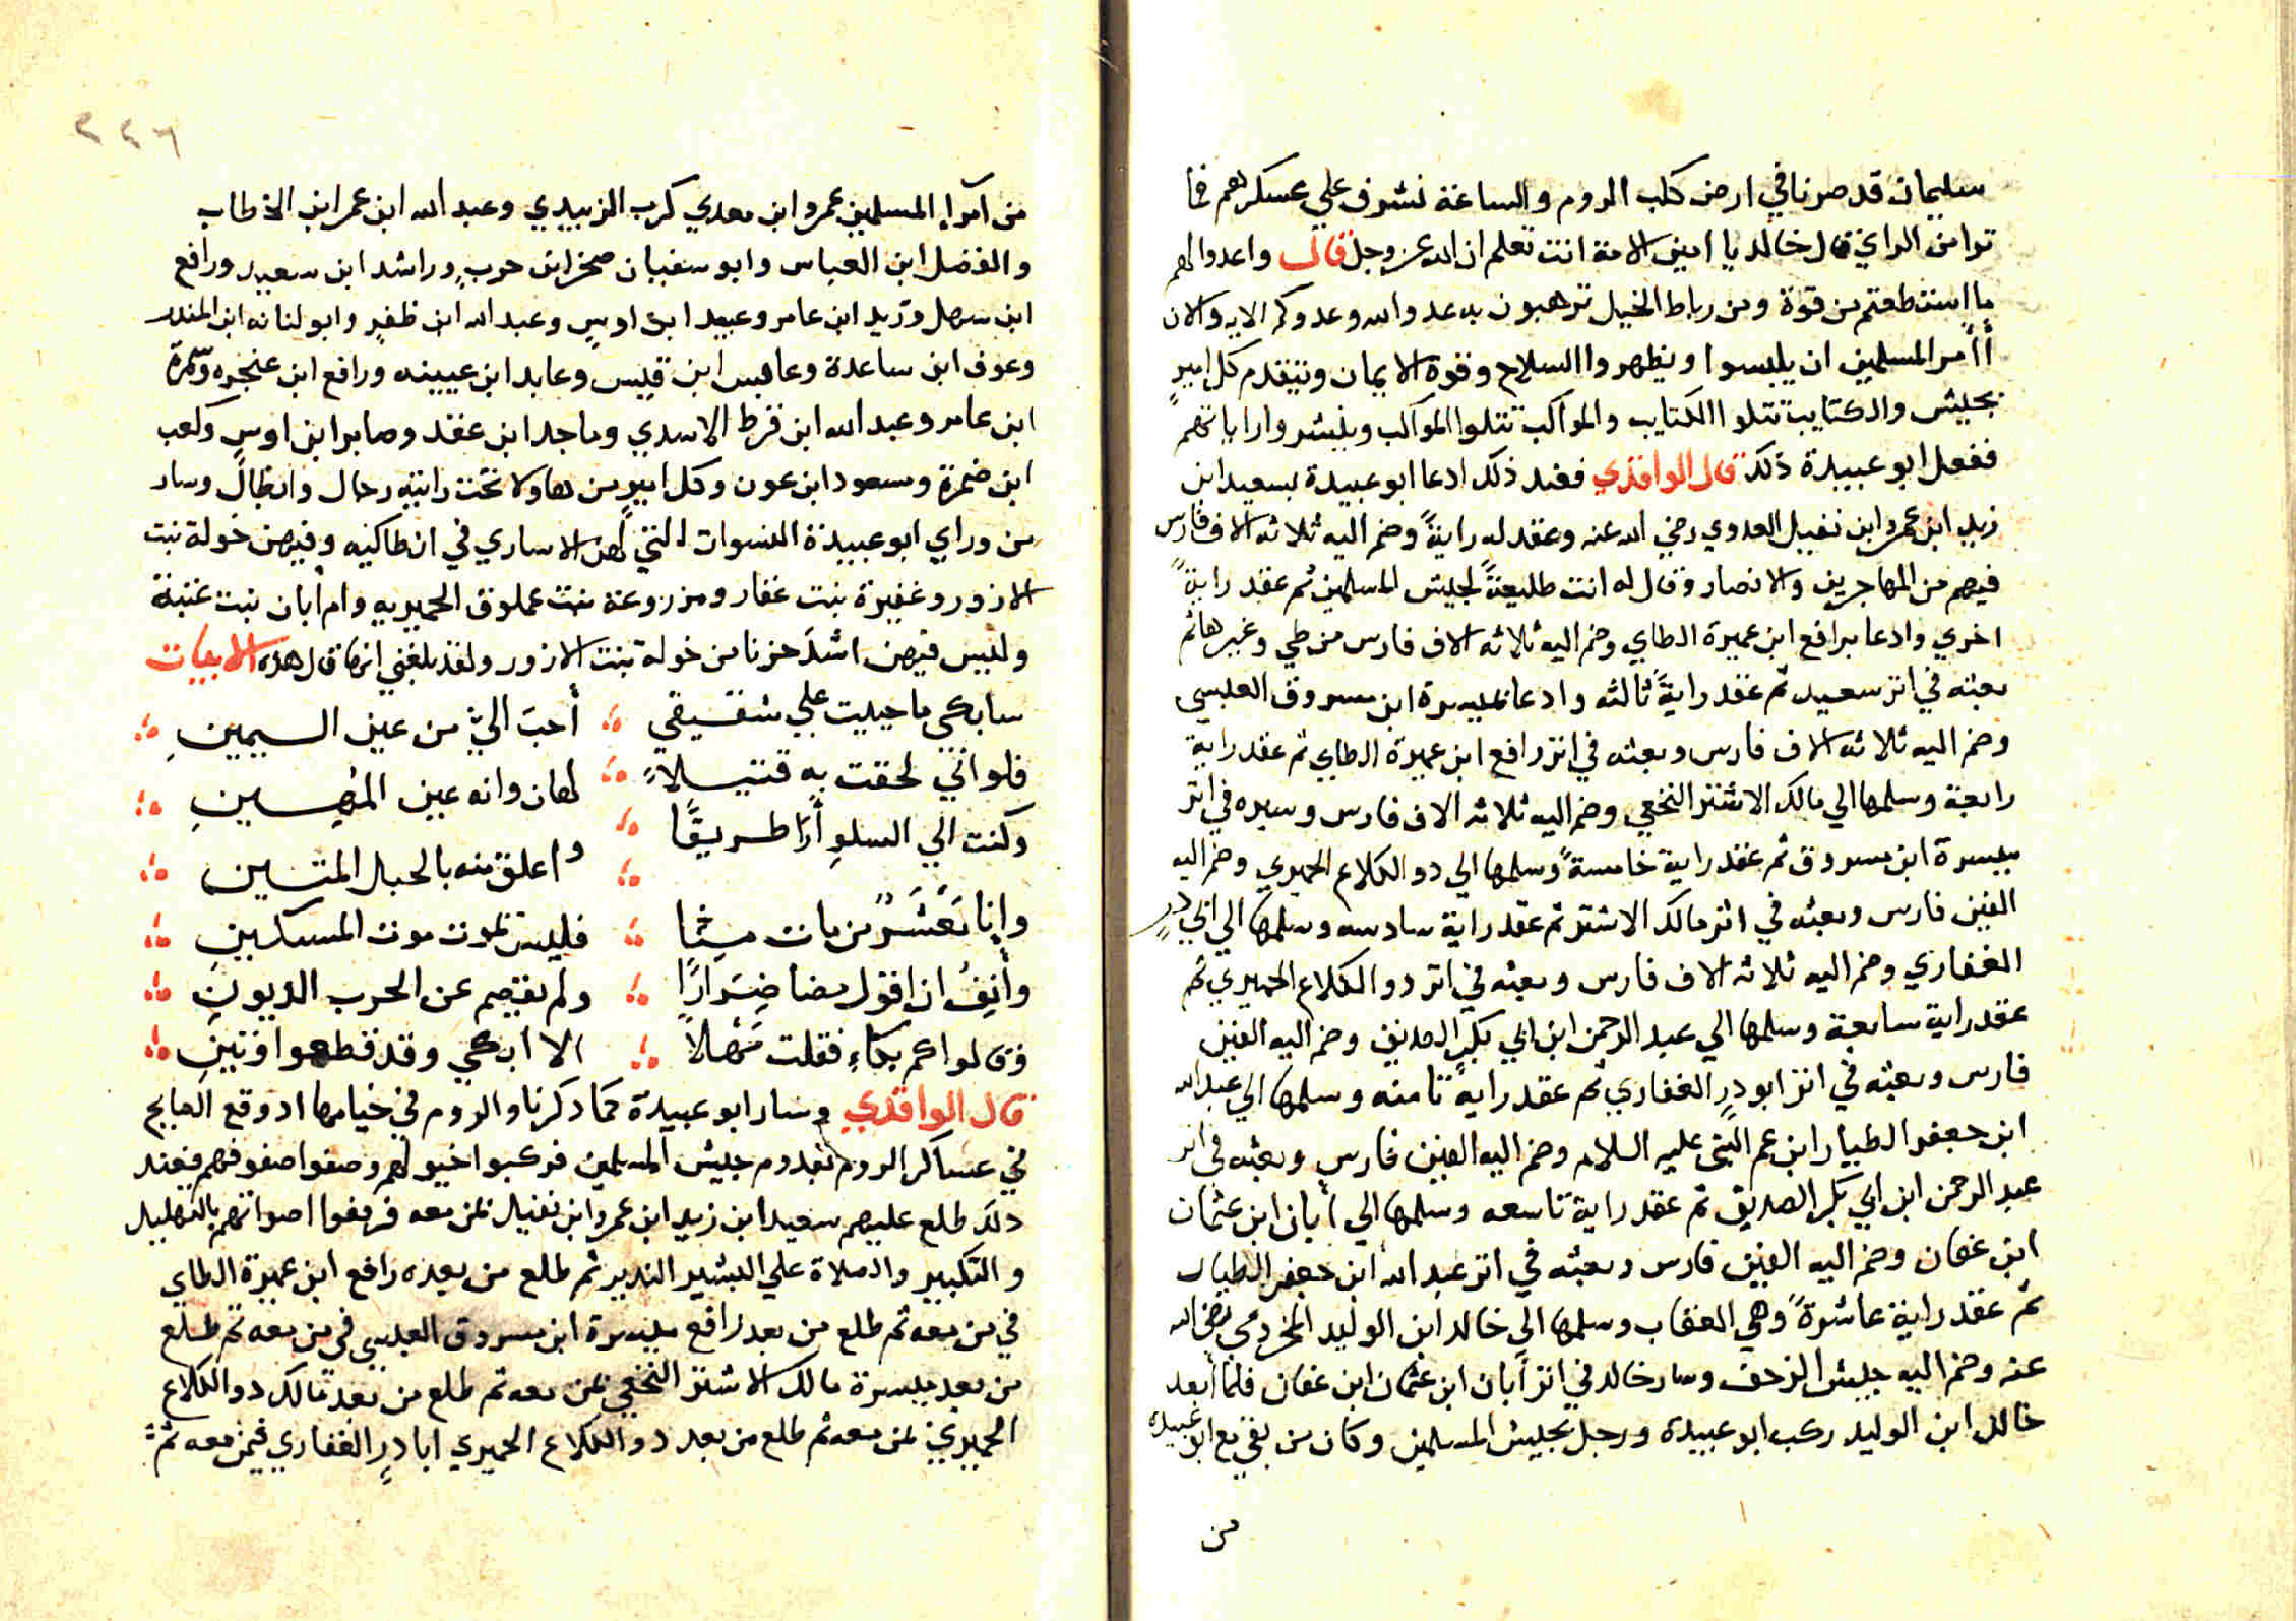 سليمان قد صرنا في ارض كلب الروم والساعة نشرف علي عسكرهم فما
ترا من الراي قال خالد يا امين الامة انت تعلم ان الله عز وجل قال واعدوا لهم
ما استطعتم من قوة ومن رباط الخيل ترهبون به عدو الله وعدوكم الايه والان
أأمر المسلمين ان يلبسوا ويظهروا السلاح وقوة الايمان ويتقدم كل امير
بجيش والكتايب تتلوا الكتايب والمواكب تتلوا المواكب وينشروا راياتهم
ففعل ابو عبيدة ذلك قال الواقدي فعند ذلك ادعا ابو عبيدة بسعيد ابن
زيد ابن عمرو ابن نفيل العدوي رضي الله عنه وعقد له رايةً وضم اليه ثلاثه الاف فارس
فيهم من المهاجرين والانصار وقال له انت طليعةً لجيش المسلمين ثم عقد رايةً
اخري وادعا برافع ابن عميرة الطاي وضم اليه ثلاثه الاف فارس من طي وغيرها ثم
بعثه في اثر سعيد ثم عقد رايةً ثالثه وادعا بميسرة ابن مسروق العبسي
وضم اليه ثلاثه الاف فارس وبعثه في اثر رافع ابن عميرة الطاي ثم عقد راية
رابعة وسلمها الي مالك الاشتر النخعي وضم اليه ثلاثه الاف فارس وسيره في اثر
ميسرة ابن مسروق ثم عقد راية خامسةً وسلمها الي دو الكلاع الحميري وضم اليه
الفين فارس وبعثه في اثر مالك الاشتر ثم عقد راية سادسه وسلمها الي ابي درٍ
الغفاري وضم اليه ثلاثه الاف فارس وبعثه في اثر دو الكلاع الحميري ثم
عقد راية سابعة وسلمها الي عبد الرحمن ابن ابي بكرٍ الصديق وضم اليه الفين
فارس وبعثه في اثر ابو درٍ الغفاري ثم عقد رايةً ثامنه وسلمها الي عبد الله
ابن جعفر الطيار ابن عم النبي عليه السلام وضم اليه الفين فارس وبعثه في اثر
عبد الرحمن ابن ابي بكر الصديق ثم عقد راية تاسعه وسلمها الي أبان ابن عثمان
ابن عفان وضم اليه الفين فارس وبعثه في اثر عبد الله ابن جعفر الطيار
ثم عقد راية عاشرةً وهي العقاب وسلمها الي خالد ابن الوليد المخزومي رضي الله
عنه وضم اليه جيش الزحف وسار خالد في اثر أبان ابن عثمان ابن عفان فلما أبعد
خالد ابن الوليد ركب ابو عبيدة ورحل بجيش المسلمين وكان من بقي مع ابو عبيدة
من
٢٢٦
من أمرا المسلمين عمرو ابن معدي كرب الزبيدي وعبد الله ابن عمر ابن الخطاب
والفضل ابن العباس وابو سفيان صخر ابن حربٍ وراشد ابن سعيد ورافع
ابن سهل وزيد ابن عامر وعبيد ابن اوسٍ وعبد الله ابن ظفرٍ وابو لبانه ابن المندر
وعوف ابن ساعدة وعابس ابن قيس وعابد ابن عيينه ورافع ابن عنجره وسمرة
ابن عامر وعبد الله ابن قرط الاسدي وماجد ابن عقد وصابر ابن اوس وكعب
ابن ضمرة ومسعود ابن عون وكل اميرٍ من هاولا تحت رايته رجال وابطال وسار
من وراي ابو عبيدة النسوان التي لهن الاساري في انطاكيه وفيهن خولة بنت
الازور وغفيرة بنت غفار ومزروعة بنت عملوق الحميريه وام أبان بنت عتبة
وليس فيهن اشد حزنا من خولة بنت الازور ولقد بلغني انها قال هده الابيات
سابكي ما حييت علي شقيقي أحبَ اليّ من عين اليمينِ
فلو اني لحقت به قتيلاً لهان وانه عين المُهينِ
وكنت الي السلوِ أرَا طريقًا واعلق منه بالحبل المتين
وإنا مَعْشَرٌ من مات منا فليس تموت موت المسكينِ
وأَنِفُ ان اقول مضا ضِرَارًا ولم يقيم عن الحرب الديونِ
وقالوا كم بكاءٍ فقلت مَهْلاً الا ابكي وقد قطعوا وتينِ
قال الواقدي وسار ابو عبيدة كما دكرنا والروم في خيامها ادوقع الصايح
في عساكر الروم بقدوم جيش المسلمين فركبوا خيولهم وصفوا صفوفهم فعند
دلك طلع عليهم سعيد ابن زيد ابن عمرو ابن نفيل بمن معه فرفعوا اصواتهم بالتهليل
والتكبير والصلاة علي البشير الندير ثم طلع من بعده رافع ابن عميرة الطاي
في من معه ثم طلع من بعد رافع ميسرة ابن مسروق العبسي في من معه ثم طلع
من بعد ميسرة مالك الاشتر النخعي بمن معه ثم طلع من بعد مالك دو الكلاع
الحميري بمن معه ثم طلع من بعد دو الكلاع الحميري ابا درٍ الغفاري فيمن معه ثم